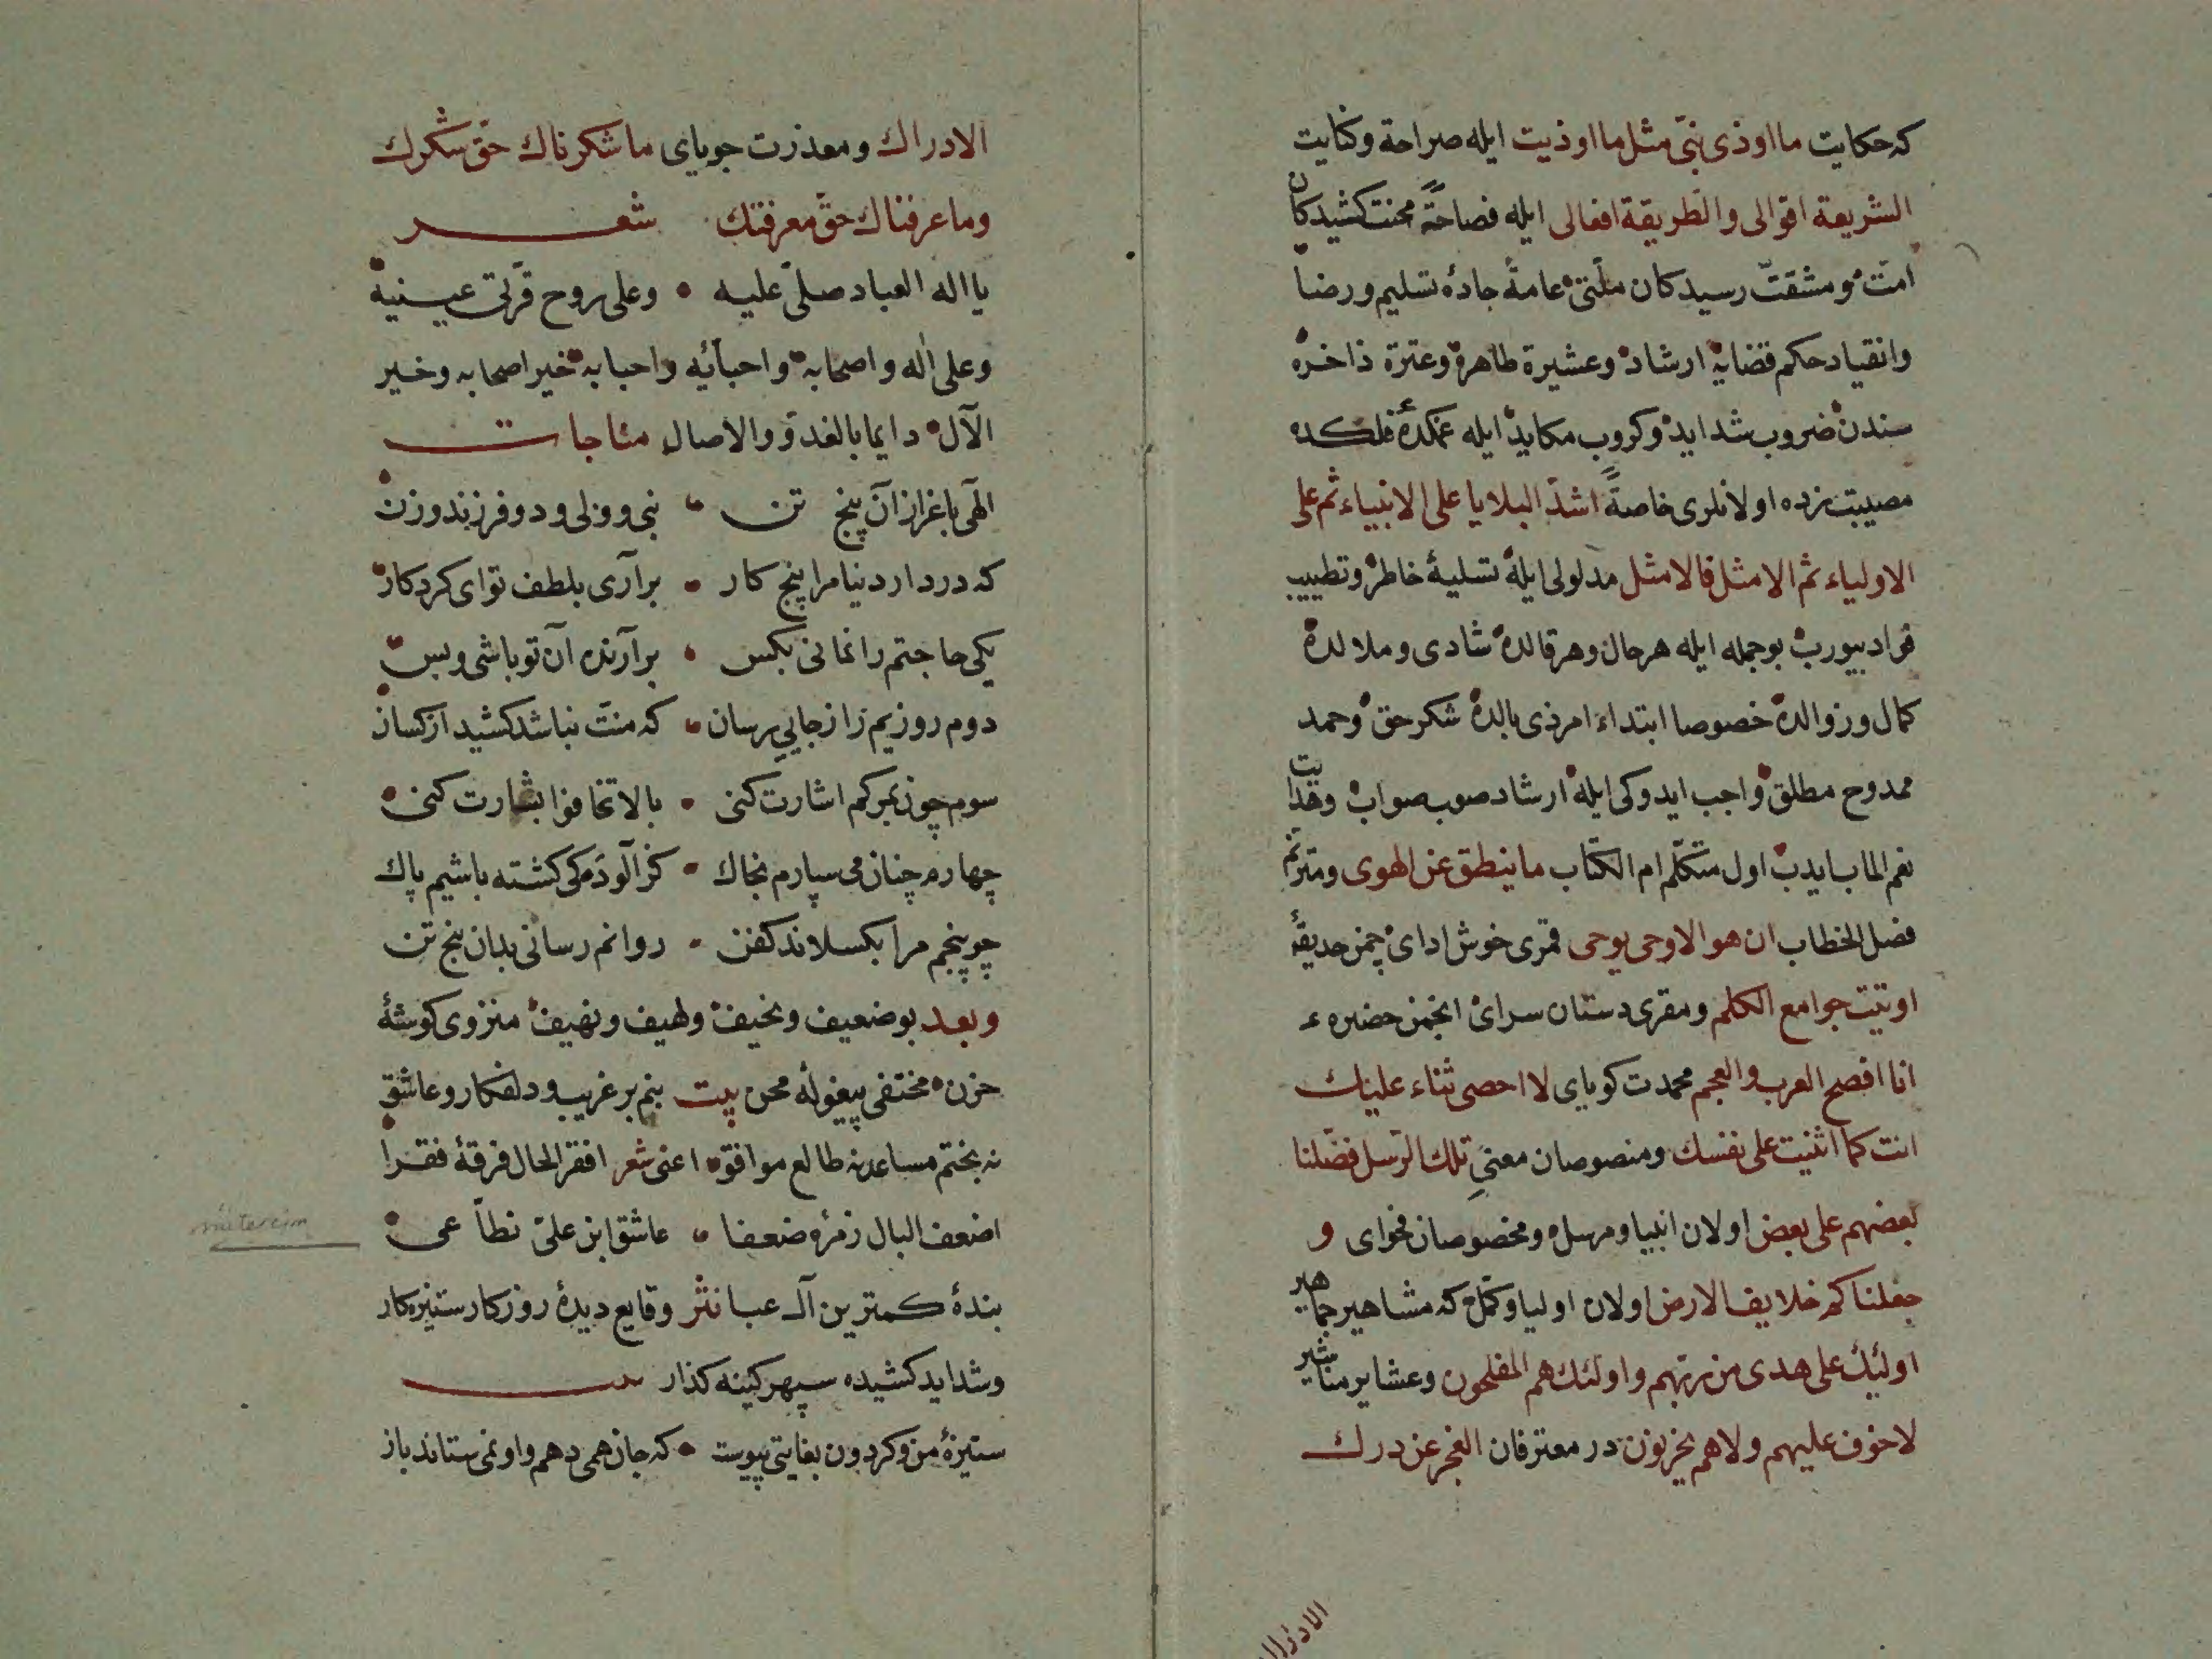 كه حكايت ما اوذی نبیّ مثل ما اوذيت ايله صراحة وكنايت
الشريعة اقوالی والطريقة افعالی ايله فصاحةً محنت كشيدكان
امّت ومشقت رسيدكان ملّتی عامةً جادهٔ تسليم ورضا
وانقياد حكم قضايه ارشاد وعشيرة طاهره وعترة ذاخره
سندن ضروب شدايد وكروب مكايد ايله غمكدهٔ فلكده
مصيبت زده اولانلری خاصةً اشدّ البلايا علی الانبياء ثم علی
الاولياء ثم الامثل فالامثل مدلولی ايله تسليهٔ خاطر وتطييب
فواد بيورب بوجمله ايله هرحال وهرقالده شادی وملالده
كمال وزوالده خصوصا ابتداء امر ذی بالده شكر حق وحمد
ممدوح مطلق واجب ايدوكی ايله ارشاد صوب صواب وهدايت
نعم الماب ايدب اول متكلّم ام الكتاب ما ينطق عن الهوی ومترنّم
فصل الخطاب ان هو الا وحی يوحی قمری خوش ادای چمن حديقهٔ
اوتيت جوامع الكلم ومقری دستان سرای انجمن حضرهء
انا افصح العرب والعجم محمدت كويای لا احصی ثناء عليك
انت كما اثنيت علی نفسك ومنصوصان معنیِ تلك الرّسل فضّلنا
بعضهم علی بعض اولان انبيا ومرسل ومخصوصان فحوای و
جعلناكم خلايف الارض اولان اوليا وكمّل كه مشاهير جماهير
اولئك علی هدی من ربّهم واولئك هم المفلحون وعشاير مناشير
لا خوف عليهم ولا هم يحزنون در معترفان العجز عن درك
الادراك
الادراك ومعذرت جويای ما شكرناك حقّ شكرك
وما عرفناك حقّ معرفتك شعر
يا اله العباد صلّی عليه • وعلی روح قرّتی عينيه
وعلی اله واصحابه واحبائه واحبابه خير اصحابه وخير
الآل دايما بالغدوّ والاصال مناجات
الهی باعزاز آن پنج تن • نبی وولی ودو فرزند وزن
كه در دار دنيا مرا پنج كار • برآری بلطف تو ای كردكار
يكی حاجتم را نمانی بكس • برآرنده آن تو باشی وبس
دوم روزيم را ز جايی رسان • كه منّت نباشد كشيد از كسان
سوم چون بمركم اشارت كنی • بالا تخافوا بشارت كنی
چهارم چنان می سپارم بخاك • كز آلودكی كشته باشيم پاك
چو پنجم مرا بكسلاند كفن • روانم رسانی بدان پنج تن
وبعد بو ضعيف ونحيف ولهيف ونهيف منزوی كوشهٔ
حزن مختفی پيغولهٔ محن بيت بنم بر غريب ودلفكار وعاشق
نه بختم مساعد نه طالع موافق اعنی شعر افقر الحال فرقهٔ فقرا
اضعف البال زمرهٔ ضعفا • عاشق ابن علیّ نطاّعی
mütercim
بندهٔ كمترين آل عبا نثر وقايع ديدهٔ روزكار ستيزه كار
وشدايد كشيده سپهر كينه كذار
ستيزهٔ من وكردون بغايتی پيوست • كه جان همی دهم واو نمی ستاند باز